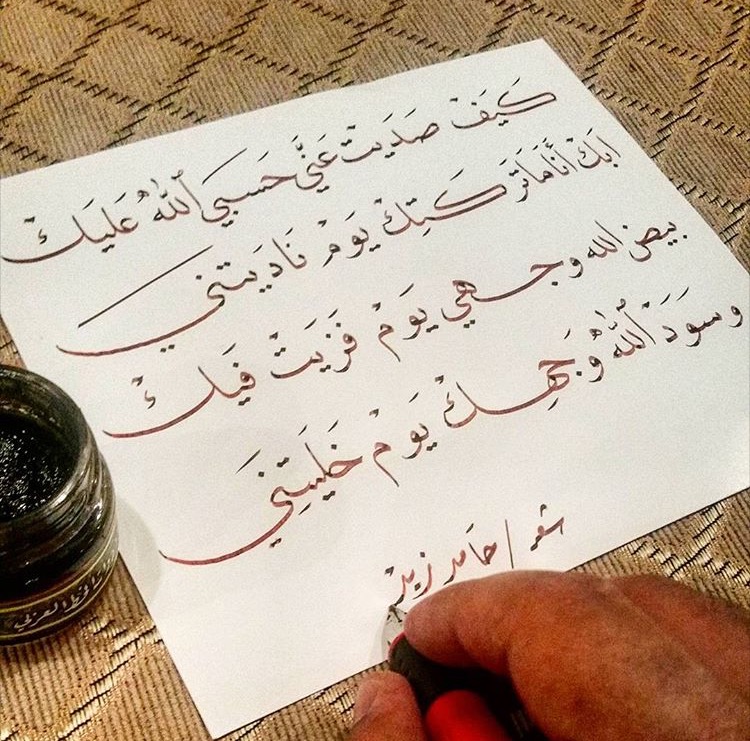 كيف صديت عني حسبي الله عليك
ابك أنا ما تركتك يوم ناديتني
بيض الله وجهي يوم فزيت فيك
وسود الله وجهك يوم خليتني
شعر / حامد زيد